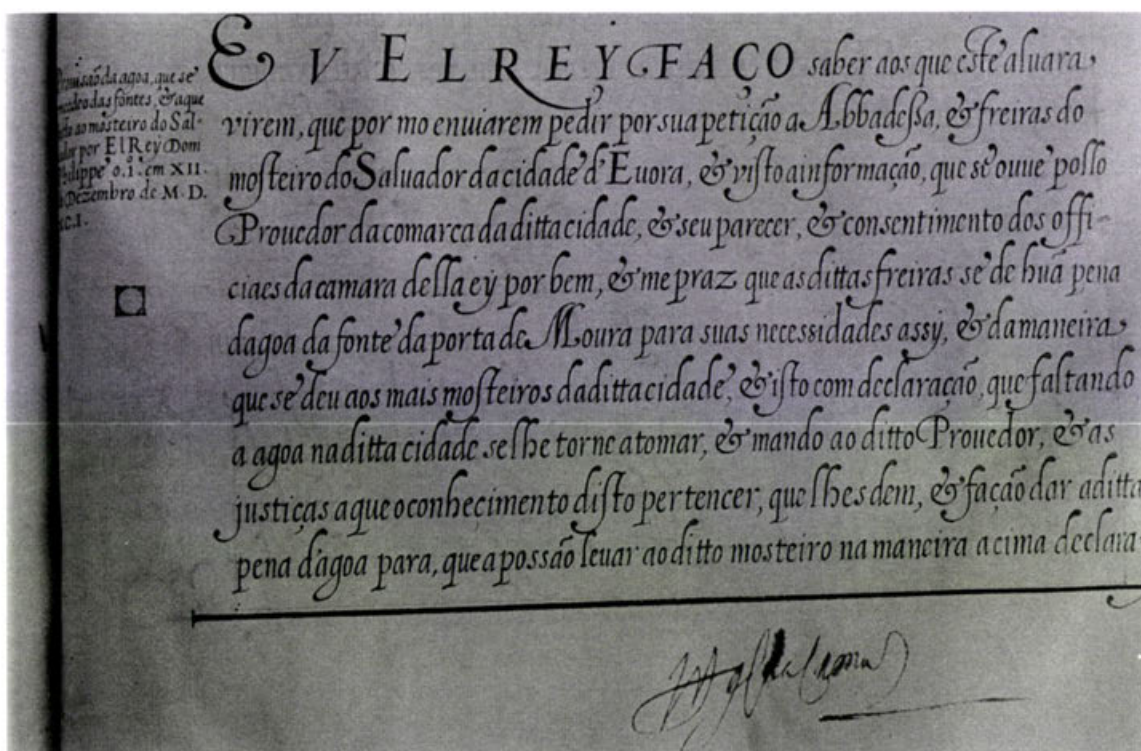 saõ da agoa, que se
das fontes, & a que
ao mosteiro do Sal-
por El Rey Dom
Philippe o. i. em XII.
Dezembro de M. D.
EV EL REY FAÇO saber aos que este aluara
virem, que por mo enuiarem pedir por sua petição a Abbadeſsa, & freiras do
moſteiro do Saluador da cidade d'Euora, & viſto a informação, que se ouue pollo
Prouedor da comarca da ditta cidade, & seu parecer, & consentimento dos offi-
ciaes da camara deſla ey por bem, & me praz que as dittas freiras se de huã pena
dagoa da fonte da porta de Moura para suas necessidades assy, & da maneira
que se deu aos mais moſteiros da ditta cidade, & iſto com declaração, que faltando
a agoa na ditta cidade se lhe torne a tomar, & mando ao ditto Prouedor, & as
justiças a que o conhecimento diſto pertencer, que lhes dem, & fação dar a ditta
pena d'agoa para, que a possão leuar ao ditto mosteiro na maneira acima declara-